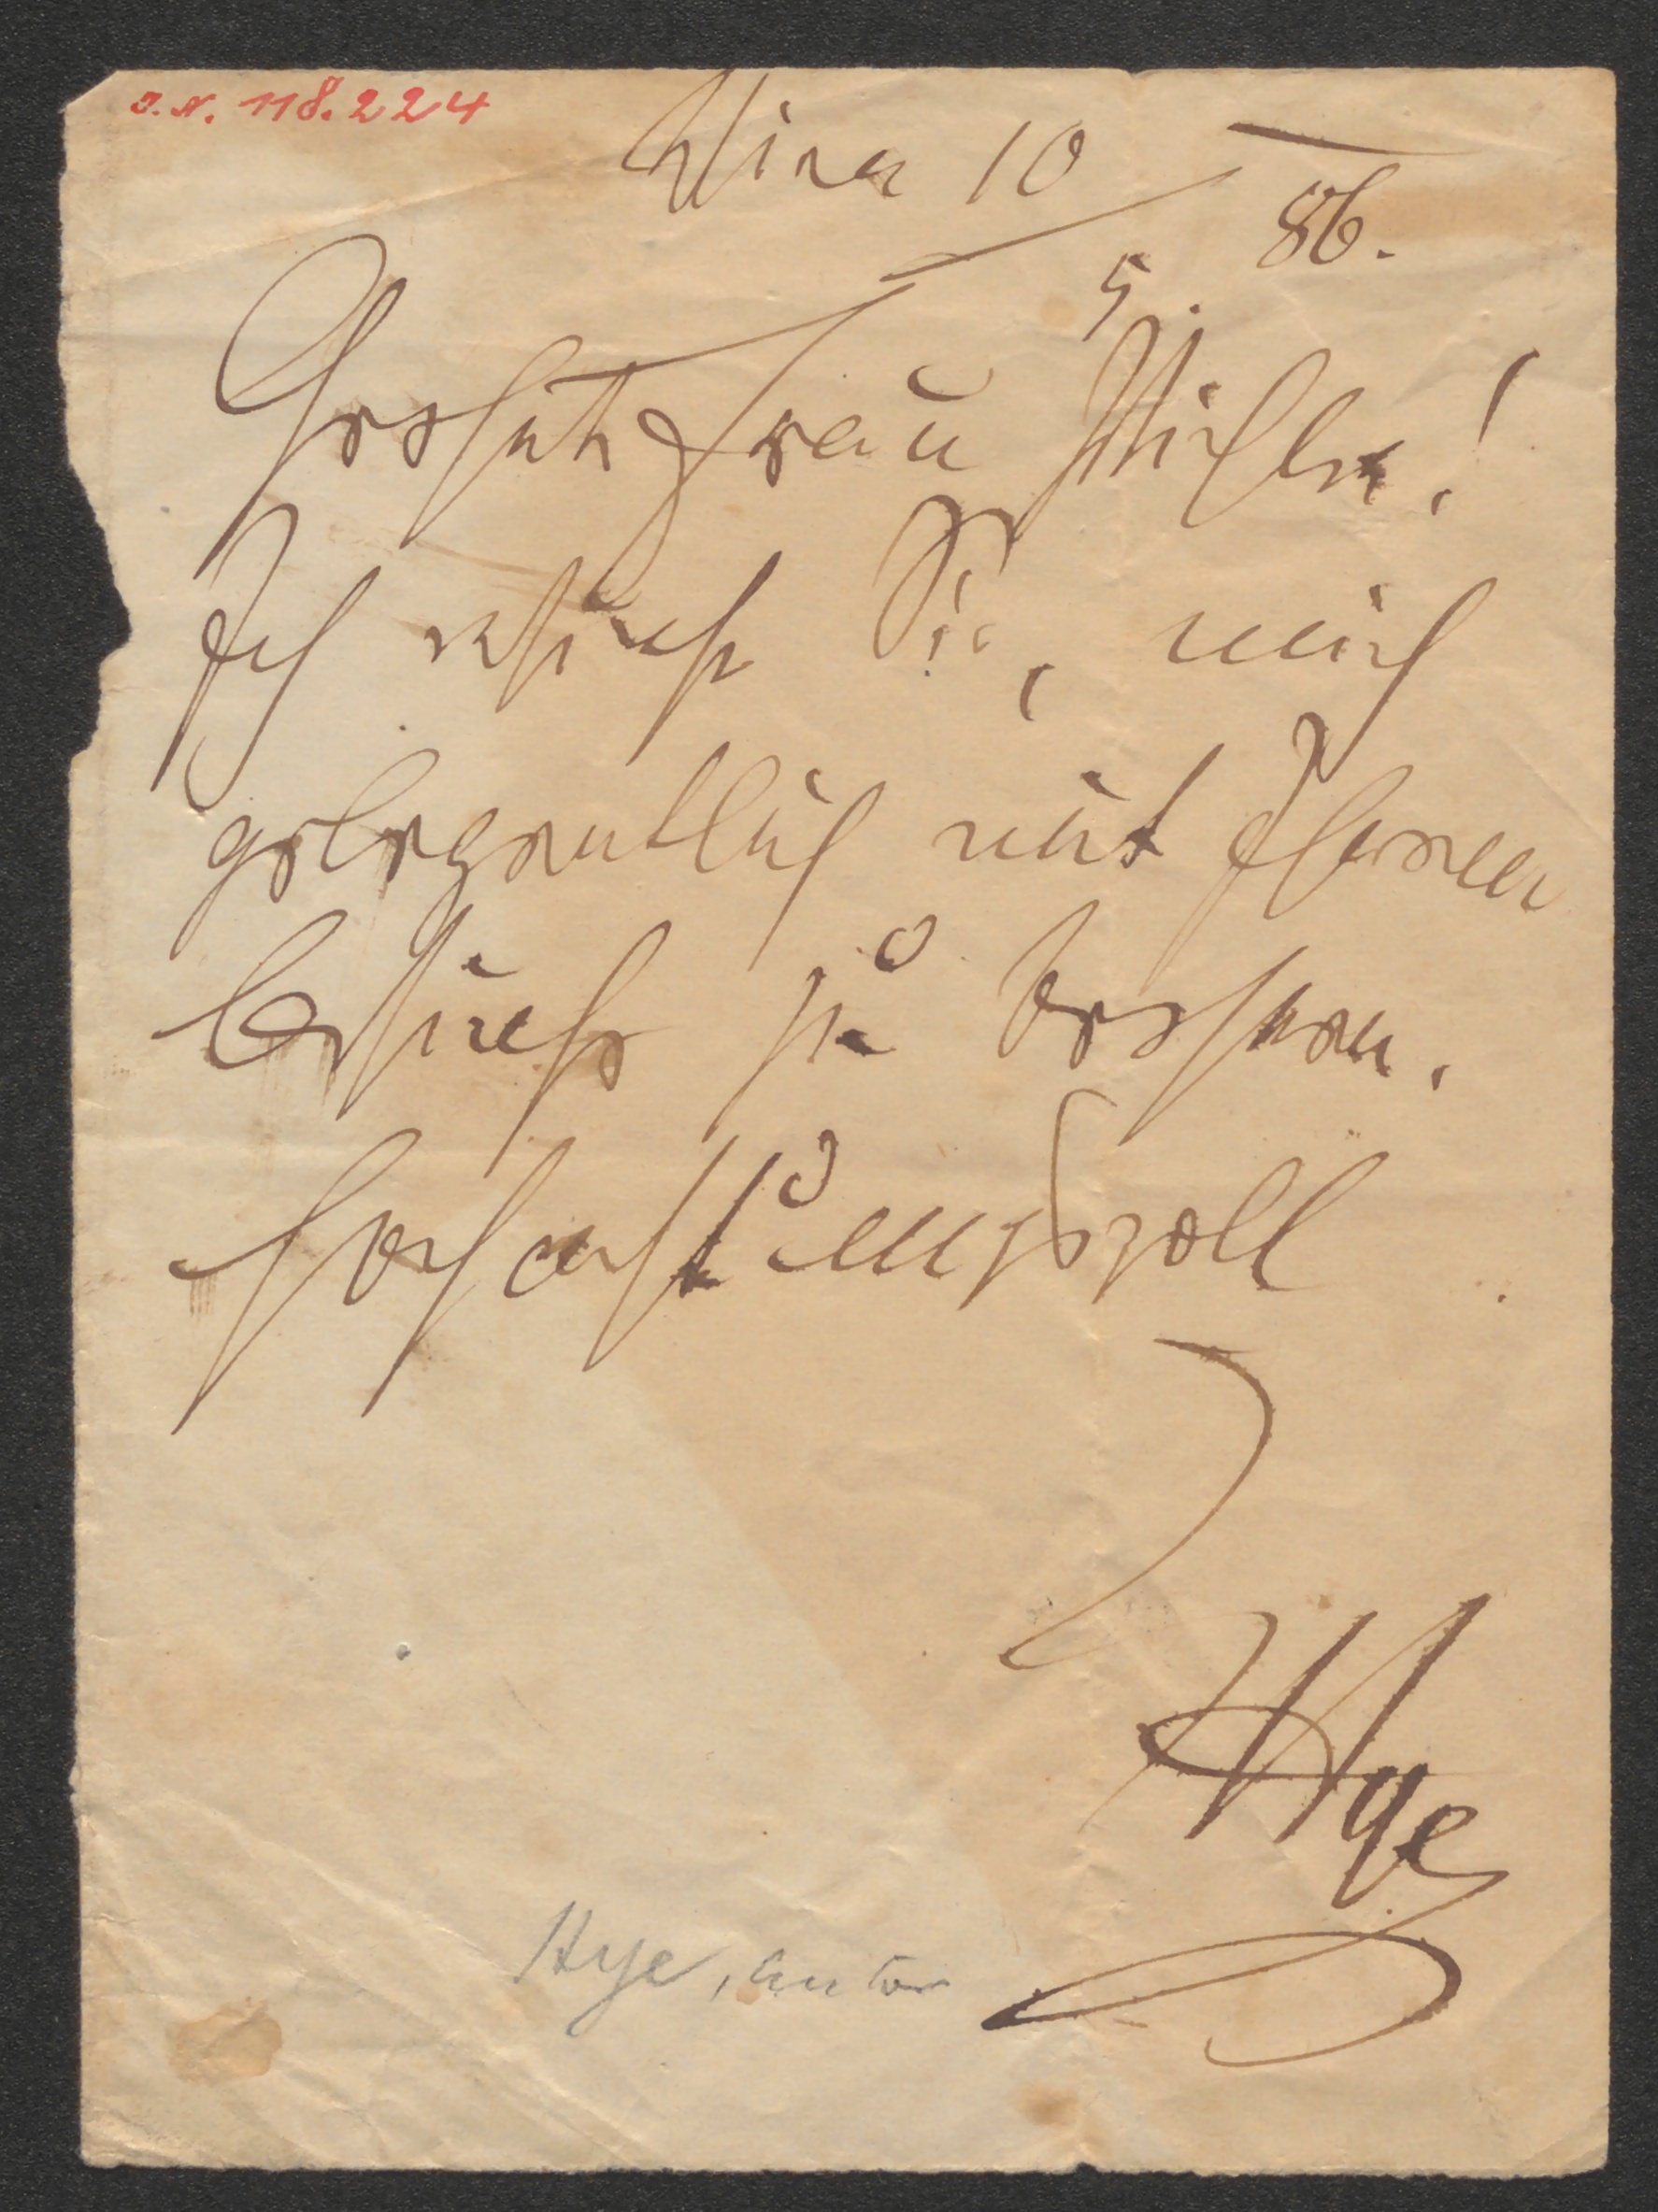 I. N. 118.224
Wien 10/5. 86.
Geehrte Frau
Ich ersuche Sie, mich
gelegentlich mit Ihrem
Besuche zu beehren.
Hochachtungsvoll
Hye
Hye, Anton